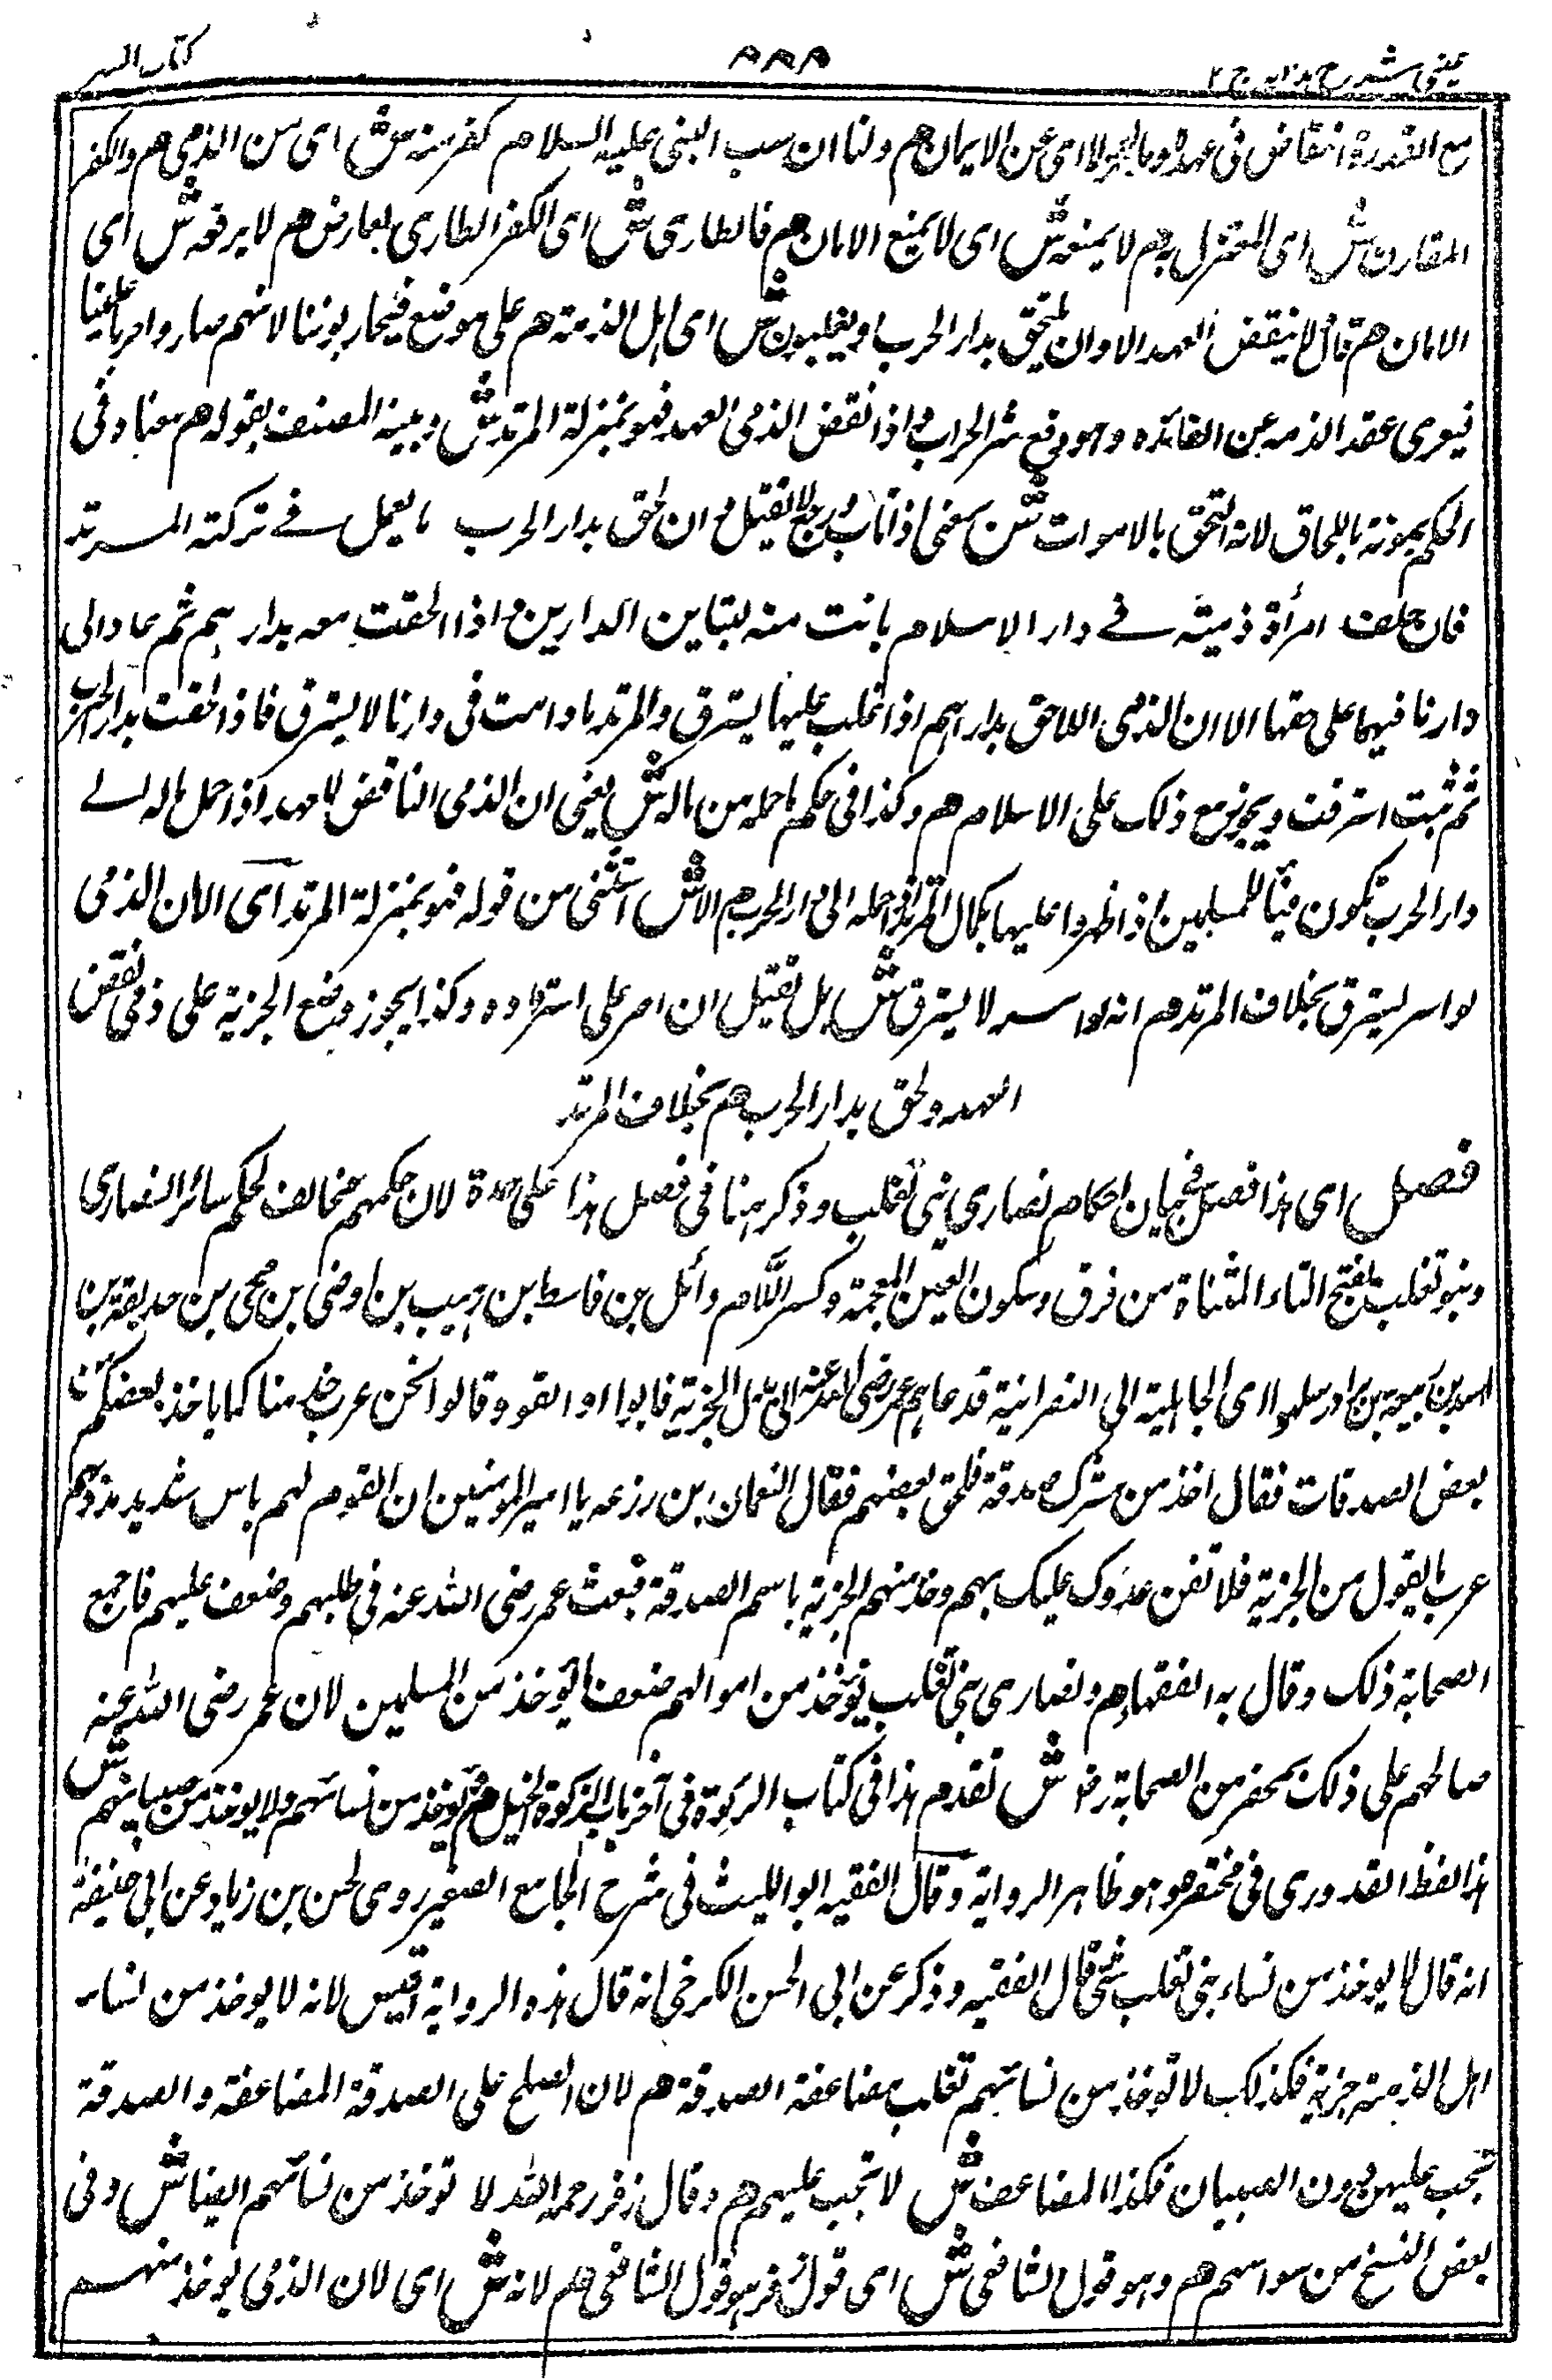 عينى شرح هدايه ج ٢
٨٨٨
كتاب السير
مع القدرة انتقاض فى عهده وما ليمر لا اى عن الايمان هم ولنا ان سب النبى عليه السلام كفر منه ش اى من الذمى هم والكفر
المقارن ش اى المتصل به هم لا يمنعه ش اى لا يمنع الامان هم فالطارى ش اى الكفر الطارى بعارض هم لا يرفعه ش اى
الامان هم قال لا ينقض العهد الا وان يلتحق بدار الحرب او يغلبون ش اى اهل الذمة هم على موضع فيحاربوننا لانهم صاروا حربا علينا
فيعرى عقد الذمه عن الفائده وهو دفع شر الحراب هم واذا نقض الذمى العهد فهو بمنزلة المرتد ش وبينه المصنف بقوله هم معناه فى
الحكم بموته باللحاق لانه التحق بالاموات ش يعنى اذا تاب ورجع لا يقتل وان لحق بدار الحرب ما يعمل فے تركته المرتد
فان خلف امرأة ذمية فے دار الاسلام بانت منه لتباين الدارين واذا لحقت معه بدار هم ثم عاد الى
دارنا فيهما على حقها الا ان الذمى اللاحق بدارهم اذا غلب عليها يسترق والمرتد ما دامت فى دارنا لا يسترق فاذا لحقت بدار الحرب
ثم ثبت استرقت ويجوز مع ذلك على الاسلام هم وكذا فى حكم ما حمله من ماله ش يعنى ان الذمى الناقض للعهد اذا حمل ماله الے
دار الحرب تكون فيأ للمسلمين اذا ظهروا عليها كمال المرتد اذا حمله الى دار الحرب هم الا ش استثنى من قوله فهو بمنزلة المرتد اى الا ان الذمى
لو اسر يسترق بخلاف المرتد هم انه لو اسر لا يسترق ش بل يقتل ان اصر على استرداده وكذا يجوز وضع الجزية على ذمى نقض
العهد ولحق بدار الحرب هم بخلاف المرتد
فصل اى هذا فصل فى بيان احكام نصارى بنى تغلب وذكر هنا فى فصل هذا على حدة لان حكمهم مخالف لحكم سائر النصارى
وبنو تغلب بفتح التاء المثناة من فوق وسكون الغين المعجمة وكسر اللام وائل بن قاسط بن هبيب بن اوصى بن محى بن حديقة بن
اسد بن ربيعة بن ... الجاهلية الى النصرانية فدعاهم عمر رضى الله عنه الى بذل الجزية فابوا او انقو وقالوا نحن عرب خذ منا كما ياخذ بعضكم من
بعض الصدقات فقال اخذ من مشرك صدقة فلحق بعضهم فقال النعمان بن رزعه يا امير المومنين ان القوم لهم باس شديد وهم
عرب بالقول من الجزية فلا تعن عدوك عليك بهم وخذ منهم الجزية باسم الصدقة فبعث عمر رضى الله عنه فى طلبهم وضعف عليهم فاجمع
الصحابة ذلك وقال به الفقهاء هم ونصارى بنى تغلب يؤخذ من اموالهم ضعف ما يؤخذ من المسلمين لان عمر رضى الله عنه
صالحهم على ذلك بمحضر من الصحابة رضا ش تقدم هذا فى كتاب الزكوة فى آخر باب الزكوة الخيل هم يؤخذ من نسائهم ولا يوخذ من صبيانهم ش
هذا لفظ القدورى فى مختصره وهو ظاهر الرواية وقال الفقيه ابو الليث فى شرح الجامع الصغير روى الحسن بن زياد عن ابى حنيفة
انه قال لا يوخذ من نساء بنى تغلب شئ قال الفقيه وذكر عن ابى الحسن الكرخى انه قال هذه الرواية اقيس لانه لا يوخذ من نساء
اهل الذمة جزية فكذلك لا تؤخذ من نسائهم تغلب مضاعفة الصدقة هم لان الصلح على الصدقة المضاعفة والصدقة
تجب عليهن دون الصبيان فكذا المضاعف ش لا تجب عليهم هم وقال زفر رحمه الله لا توخذ من نسائهم ايضا ش وفى
بعض النسخ من سواسهم هم وهو قول الشافعى ش اى قول زفر هو قول الشافعى هم لانه ش اى لان الذمى يوخذ منهم